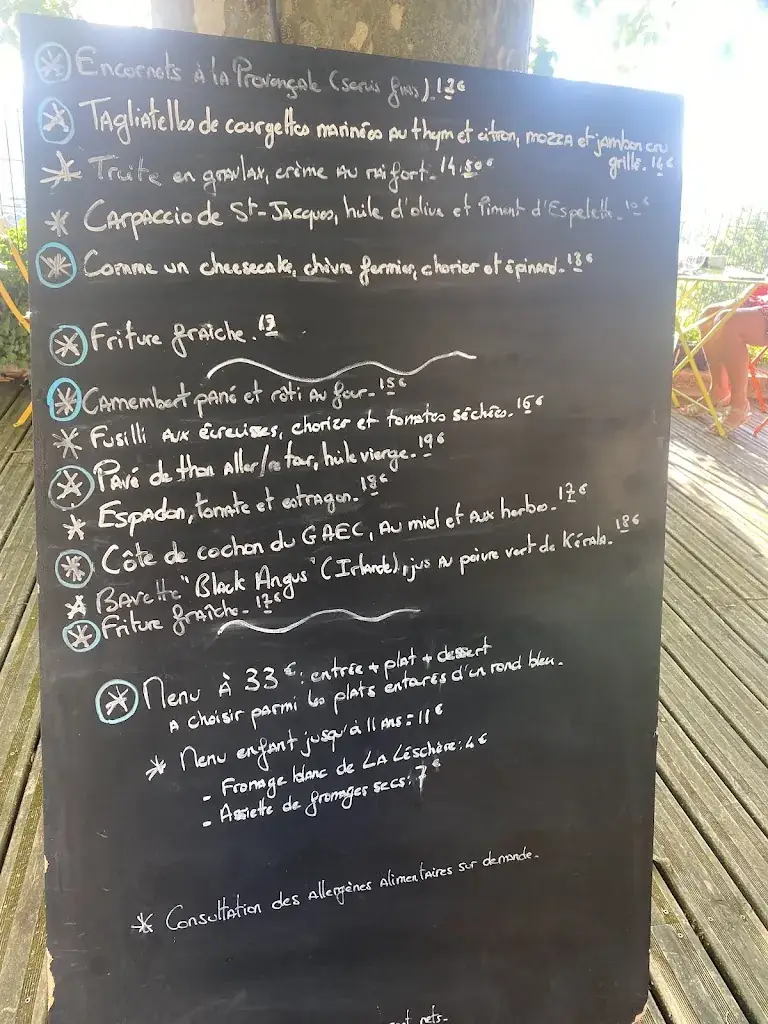 Encornets à la Provençale (servis finis). 12€
Tagliatelles de courgettes marinées au thym et citron, mozza et jambon cru
grillé. 14€
Truite en gravlax, crème au raifort. 14.50€
Carpaccio de St-Jacques, huile d'olive et Piment d'Espelette. 10€
Comme un cheesecake, chèvre fermier, chorizo et épinard. 13€
Friture fraîche. 13
Camembert pané et rôti au four. 15€
Fusilli aux écrevisses, chorizo et tomates séchées. 16€
Pavé de thon aller/retour, huile vierge. 19€
Espadon, tomate et estragon. 18€
Côte de cochon du GAEC, au miel et aux herbes. 17€
Bavette "Black Angus" (Irlande), jus au poivre vert de Kérala. 18€
Friture fraîche. 17€
Menu à 33€: entrée + plat + dessert
A choisir parmi les plats entourés d'un rond bleu.
Menu enfant jusqu'à 11 ans: 11€
- Fromage blanc de La Léschère: 4€
- Assiette de fromages secs: 7€
Consultation des Allergènes Alimentaires sur demande.
nets.